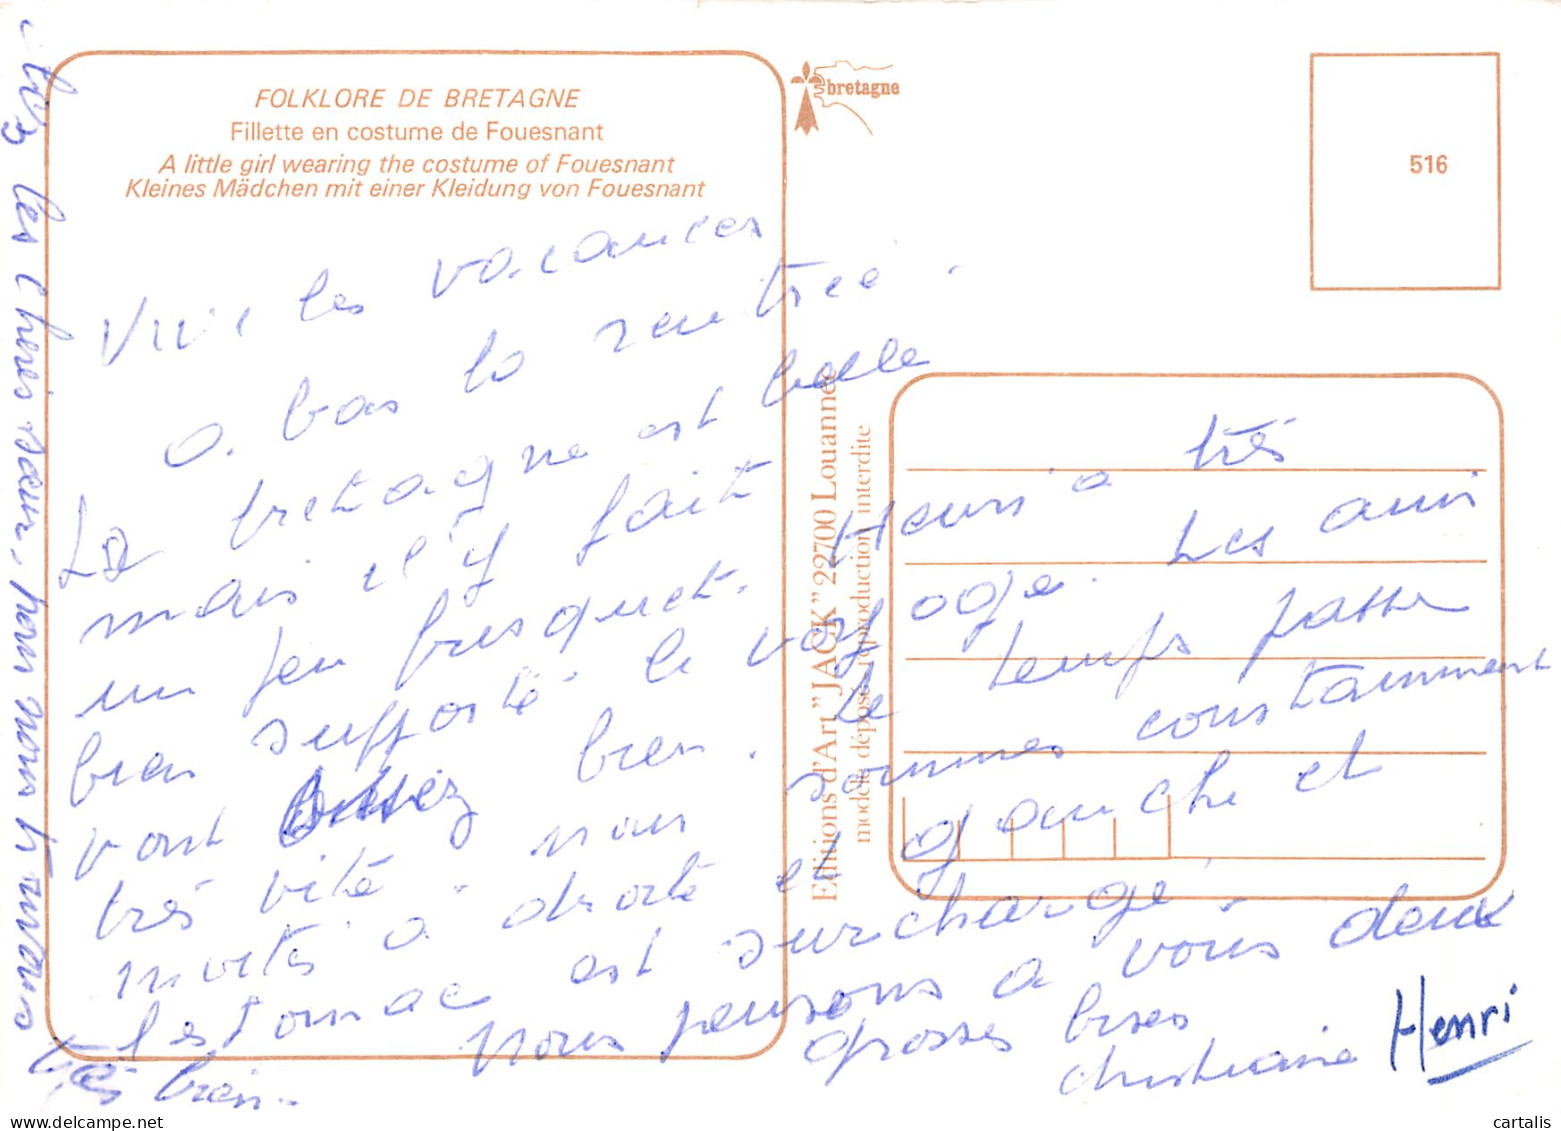 FOLKLORE DE BRETAGNE
Fillette en costume de Fouesnant
A little girl wearing the costume of Fouesnant
Kleines Mädchen mit einer Kleidung von Fouesnant
bretagne
516
Editions d'Art "JACK" 22700 Louannec
modèle déposé, reproduction interdite
Vive les vacances
a bas la rentrée.
La bretagne est belle
mais il y fait
un peu frisquet. Henri a très
bien supporté le voyage. Les ami
vont assez bien. Le temps passe
très vite. nous sommes constamment
invités a droite et gauche et
l'estomac est surchargé.
nous pensons a vous deux
grosses bises
christiane Henri
chez les chères sœur, nous nous trouvons
très bien.